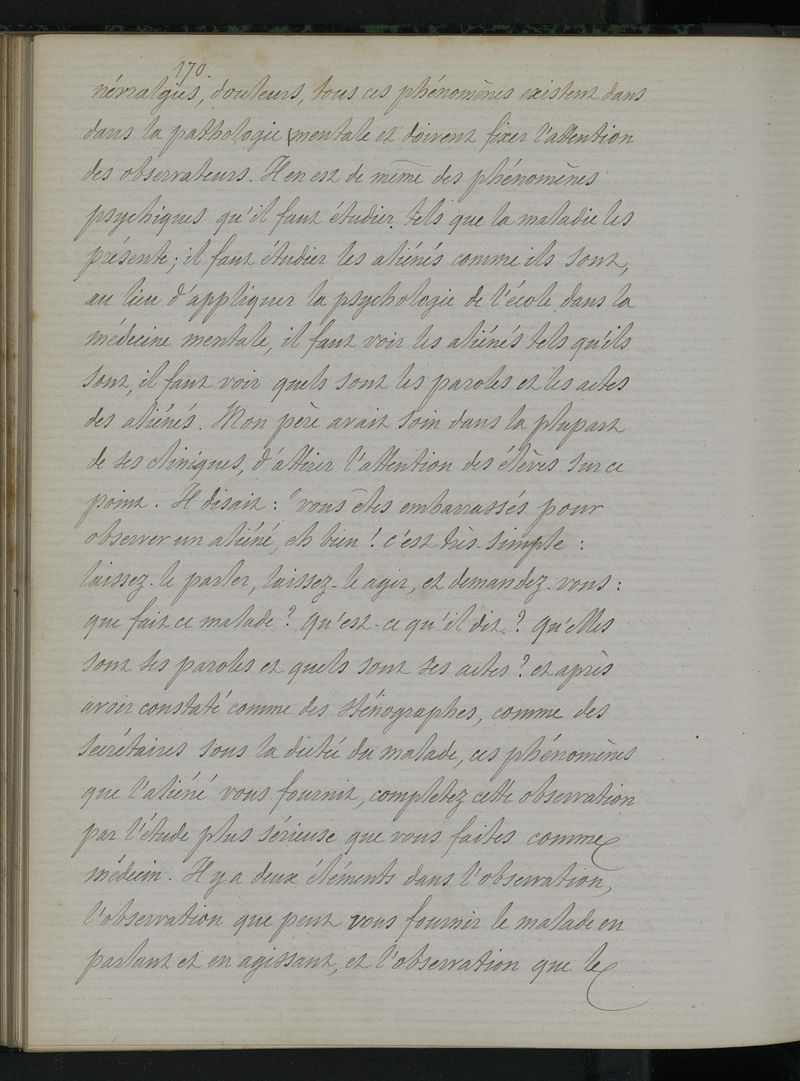 170.
névralgies, douleurs, tous ces phénomènes existent dans
dans la pathologie mentale et doivent fixer l'attention
des observateurs. Il en est de même des phénomènes
psychiques qu'il faut étudier tels que la maladie les
présente; il faut étudier les aliénés comme ils sont,
au lieu d'appliquer la psychologie de l'école dans la
médecine mentale, il faut voir les aliénés tels qu'ils
sont, il faut voir quels sont les paroles et les actes
des aliénés. Mon père avait soin dans la plupart
de ses cliniques, d'attirer l'attention des élèves sur ce
point. Il disait : "vous êtes embarrassés pour
observer un aliéné, eh bien ! c'est très-simple :
laissez-le parler, laissez-le agir, et demandez-vous :
que fait ce malade ? qu'est-ce qu'il dit ? qu'elles
sont ses paroles et quels sont ses actes ? et après
avoir constaté comme des sténographes, comme des
secrétaires sous la dictée du malade, ces phénomènes
que l'aliéné vous fournit, completez cette observation
par l'étude plus sérieuse que vous faites comme
médecin. Il y a deux éléments dans l'observation,
l'observation que peut vous fournir le malade en
parlant et en agissant, et l'observation que le